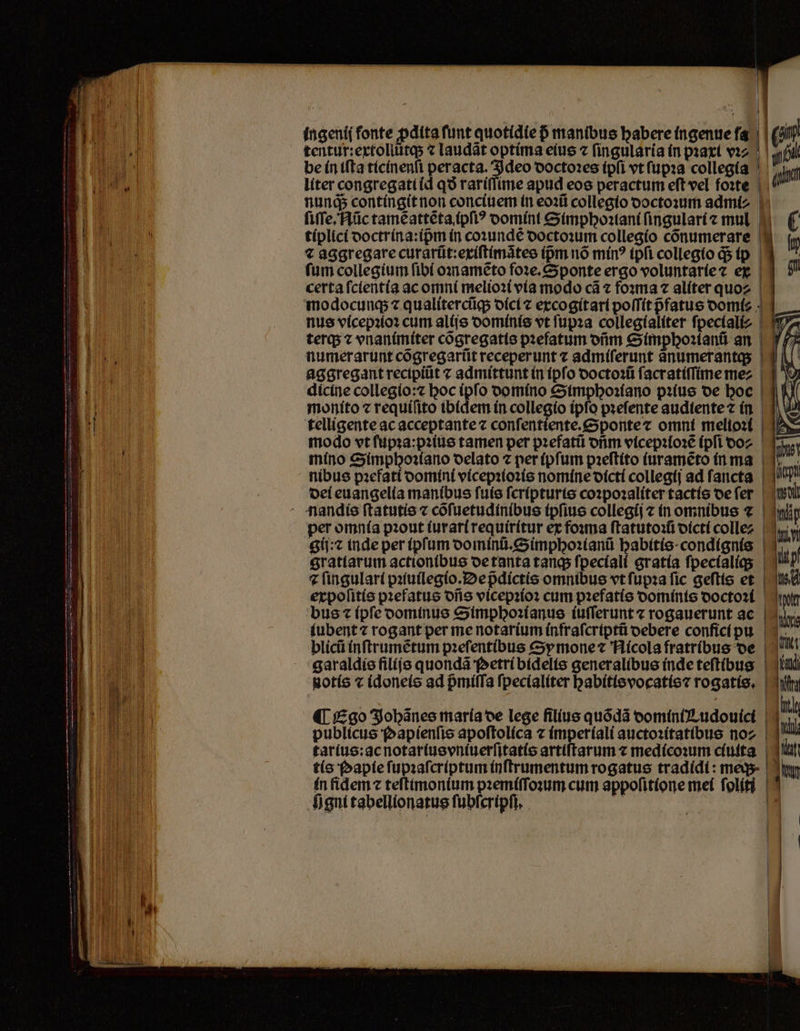 ingenij fonte ꝓdita ſunt quotidie p̄ manibus habere ingenue fa
tentur:extollūtqꝫ ⁊ laudāt optima eius ⁊ ſingularia in pꝛaxi vꝛ⸗
be in iſta ticinenſi peracta. Ideo doctoꝛes ipſi vt ſupꝛa collegia
liter congregati id qđ rariſſime apud eos peractum eſt vel foꝛte
nunqꝫ contingit non conciuem in eoꝛū collegio doctoꝛum admi⸗
ſiſſe. Nūc tamē attēta, ipſiꝰ domini Simphoꝛiani ſingulari ⁊ mul
tiplici doctrina:ip̄m in coꝛundē doctoꝛum collegio cōnumerare
⁊ aggregare curarūt:exiſtimātes ip̄m nō minꝰ ipſi collegio qꝫ ip
ſum collegium ſibi oꝛnamēto foꝛe. Sponte ergo voluntarie ⁊ ex
certa ſcientia ac omni melioꝛi via modo cā ⁊ foꝛma ⁊ aliter quo⸗
modocunqꝫ ⁊ qualitercūqꝫ dici ⁊ excogitari poſſit p̄fatus domi⸗
nus vicepꝛioꝛ cum alijs dominis vt ſupꝛa collegialiter ſpeciali⸗
terqꝫ ⁊ vnanimiter cōgregatis pꝛefatum dn̄m Simphoꝛianū an
numerarunt cōgregarūt receperunt ⁊ admiſerunt ānumerantqꝫ
aggregant recipiūt ⁊ admittunt in ipſo doctoꝛū ſacratiſſime me⸗
dicine collegio:⁊ hoc ipſo domino Simphoꝛiano pꝛius de hoc
monito ⁊ requiſito ibidem in collegio ipſo pꝛeſente audiente ⁊ in
telligente ac acceptante ⁊ conſentiente. Sponte ⁊ omni melioꝛi
modo vt ſupꝛa:pꝛius tamen per pꝛefatū dn̄m vicepꝛioꝛē ipſi do⸗
mino Simphoꝛiano delato ⁊ per ipſum pꝛeſtito iuramēto in ma
nibus pꝛefati domini vicepꝛioꝛis nomine dicti collegij ad ſancta
dei euangelia manibus ſuis ſcripturis coꝛpoꝛaliter tactis de ſer
nandis ſtatutis ⁊ cōſuetudinibus ipſius collegij ⁊ in omnibus ⁊
per omnia pꝛout iurari requiritur ex foꝛma ſtatutoꝛū dicti colle⸗
gij:⁊ inde per ipſum dominū. Simphoꝛianū habitis condignis
gratiarum actionibus de tanta tanqꝫ ſpeciali gratia ſpecialiqꝫ
⁊ ſingulari pꝛiuilegio. De p̄dictis omnibus vt ſupꝛa ſic geſtis et
expoſitis pꝛefatus dn̄s vicepꝛioꝛ cum pꝛefatis dominis doctoꝛi
bus ⁊ ipſe dominus Simphoꝛianus iuſſerunt ⁊ rogauerunt ac
iubent ⁊ rogant per me notarium infraſcriptū debere confici pu
blicū inſtrumētum pꝛeſentibus Symone ⁊ Nicola fratribus de
garaldis filijs quondā Petri bidelis generalibus inde teſtibus
notis ⁊ idoneis ad p̄miſſa ſpecialiter habitis vocatis ⁊ rogatis.
¶ Ego Johānes maria de lege filius quōdā domini Ludouici
publicus Papienſis apoſtolica ⁊ imperiali auctoꝛitatibus no⸗
tarius:ac notarius vniuerſitatis artiſtarum ⁊ medicoꝛum ciuita
tis Papie ſupꝛaſcriptum inſtrumentum rogatus tradidi: meqꝫ
in fidem ⁊ teſtimonium pꝛemiſſoꝛum cum appoſitione mei ſoliti
ſigni tabellionatus ſubſcripſi.